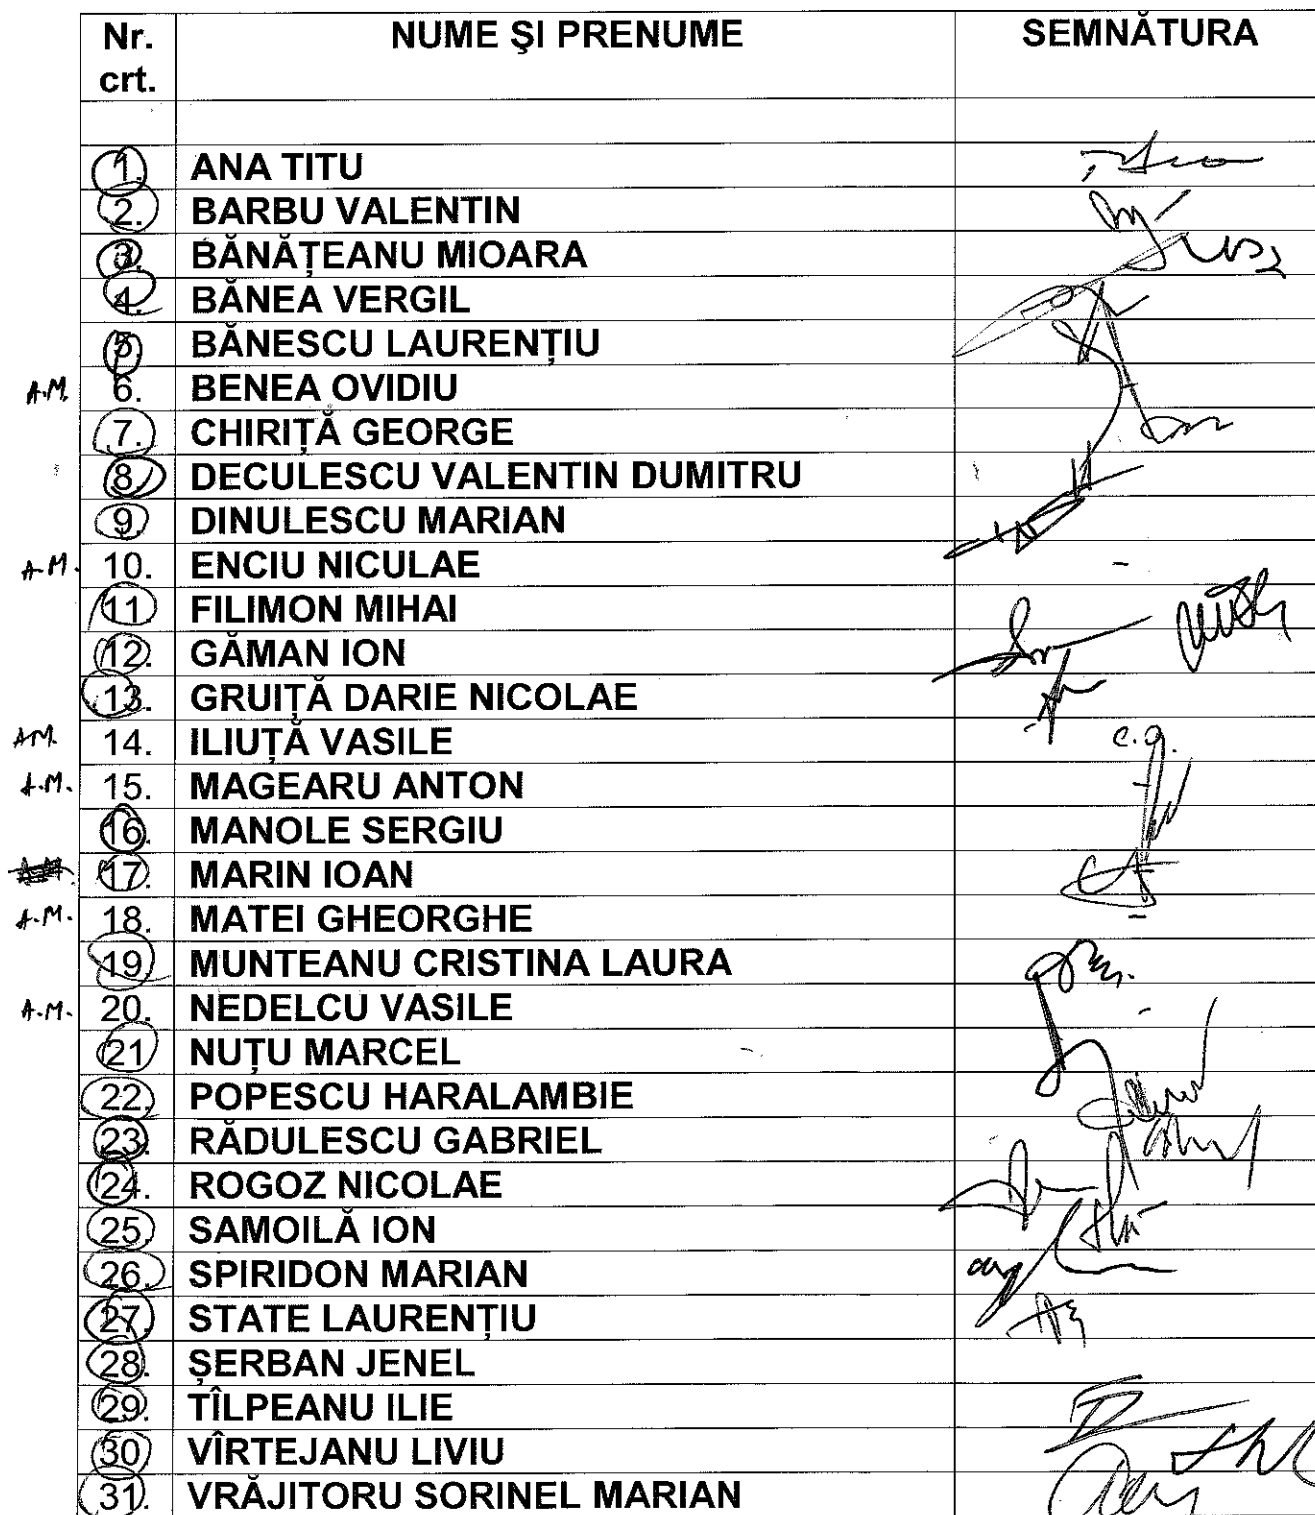 Nr. crt. NUME ŞI PRENUME SEMNĂTURA
1. ANA TITU
2. BARBU VALENTIN
3. BĂNĂȚEANU MIOARA
4. BĂNEA VERGIL
5. BĂNESCU LAURENȚIU
A.M. 6. BENEA OVIDIU
7. CHIRIȚĂ GEORGE
8. DECULESCU VALENTIN DUMITRU
9. DINULESCU MARIAN
A.M. 10. ENCIU NICULAE
11 FILIMON MIHAI
12. GĂMAN ION
13. GRUIȚĂ DARIE NICOLAE
A.M. 14. ILIUȚĂ VASILE C.G.
A.M. 15. MAGEARU ANTON
16. MANOLE SERGIU
17. MARIN IOAN
A.M. 18. MATEI GHEORGHE
19 MUNTEANU CRISTINA LAURA
A.M. 20. NEDELCU VASILE
21 NUȚU MARCEL
22. POPESCU HARALAMBIE
23. RĂDULESCU GABRIEL
24. ROGOZ NICOLAE
25. SAMOILĂ ION
26. SPIRIDON MARIAN
27. STATE LAURENȚIU
28. ȘERBAN JENEL
29. TÎLPEANU ILIE
30. VÎRTEJANU LIVIU
31. VRĂJITORU SORINEL MARIAN